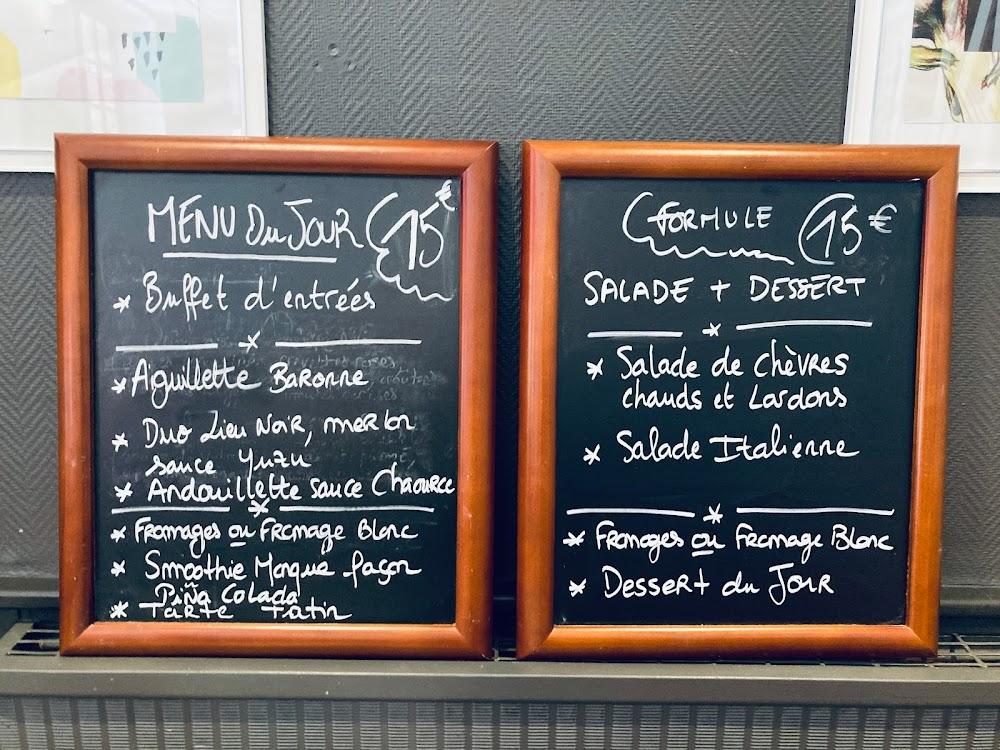 MENU Du JOUR 15€
* Buffet d'entrées
*
* Aiguillette BARONNE
* Duo Lieu NoiR, merlan
sauce Yuzu
* Andouillette sauce Chaource
*
* Fromages ou Fromage Blanc
* Smoothie Mangue façon
Piña Colada
* TARTE TATIN
FORMULE 15€
SALADE + DESSERT
*
* Salade de chèvres
chauds et Lardons
* Salade Italienne
*
* Fromages ou Fromage Blanc
* Dessert du Jour